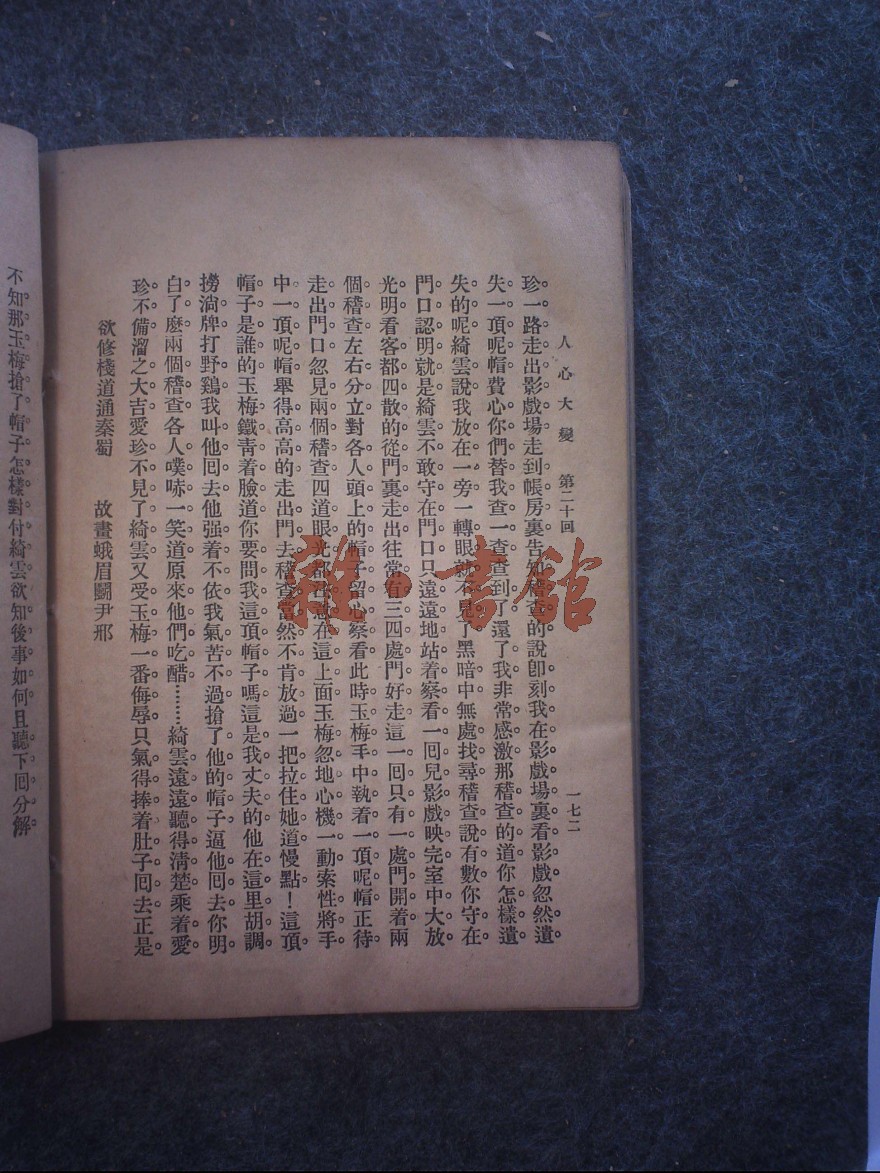 人心大變　第二十回　一七二
珍一路走出影戲場走到帳房裏告知稽查的說卽刻我在影戲場裏看影戲忽然遺
失一頂呢帽費心你們替我查一查查到了還了我非常感激那稽查的道你怎樣遺
失的呢綺雲說我放在一旁一轉眼就不見了黑暗中無處找尋稽查說有數你守在
門口認明就是綺雲不敢守在門口只遠遠地站着察看一囘兒影戲映完室中大放
光明看客都四散的從門裏走出往常有三四處門好走這一囘只有一處門開着兩
個稽查左右分立對各人頭上的帽子留心察看此時玉梅手中執着一頂呢帽正待
走出門口忽見兩個稽查四道眼光都注在這上面玉梅忽地心機一動索性將手
中一頂呢帽舉得高高的走出門去稽查當然不肯放過一把拉住她道慢點！這頂
帽子是誰的玉梅鐵靑着臉道你要問我這頂帽子嗎這是我丈夫的他在這里胡調
撈淌牌打野鷄我叫他囘去他强着不依我氣苦不過搶了他的帽子逼他囘去你明
白了麽兩個稽查各人噗哧一笑道原來他們吃醋………綺雲遠遠聽得淸楚乘着愛
珍不備溜之大吉愛珍不見了綺雲又受玉梅一番侮辱只氣得捧着肚子囘去正是
欲修棧道通秦蜀　故畫蛾眉鬭尹邢
不知那玉梅搶了帽子怎樣對付綺雲欲知後事如何且聽下囘分解
雜·書館